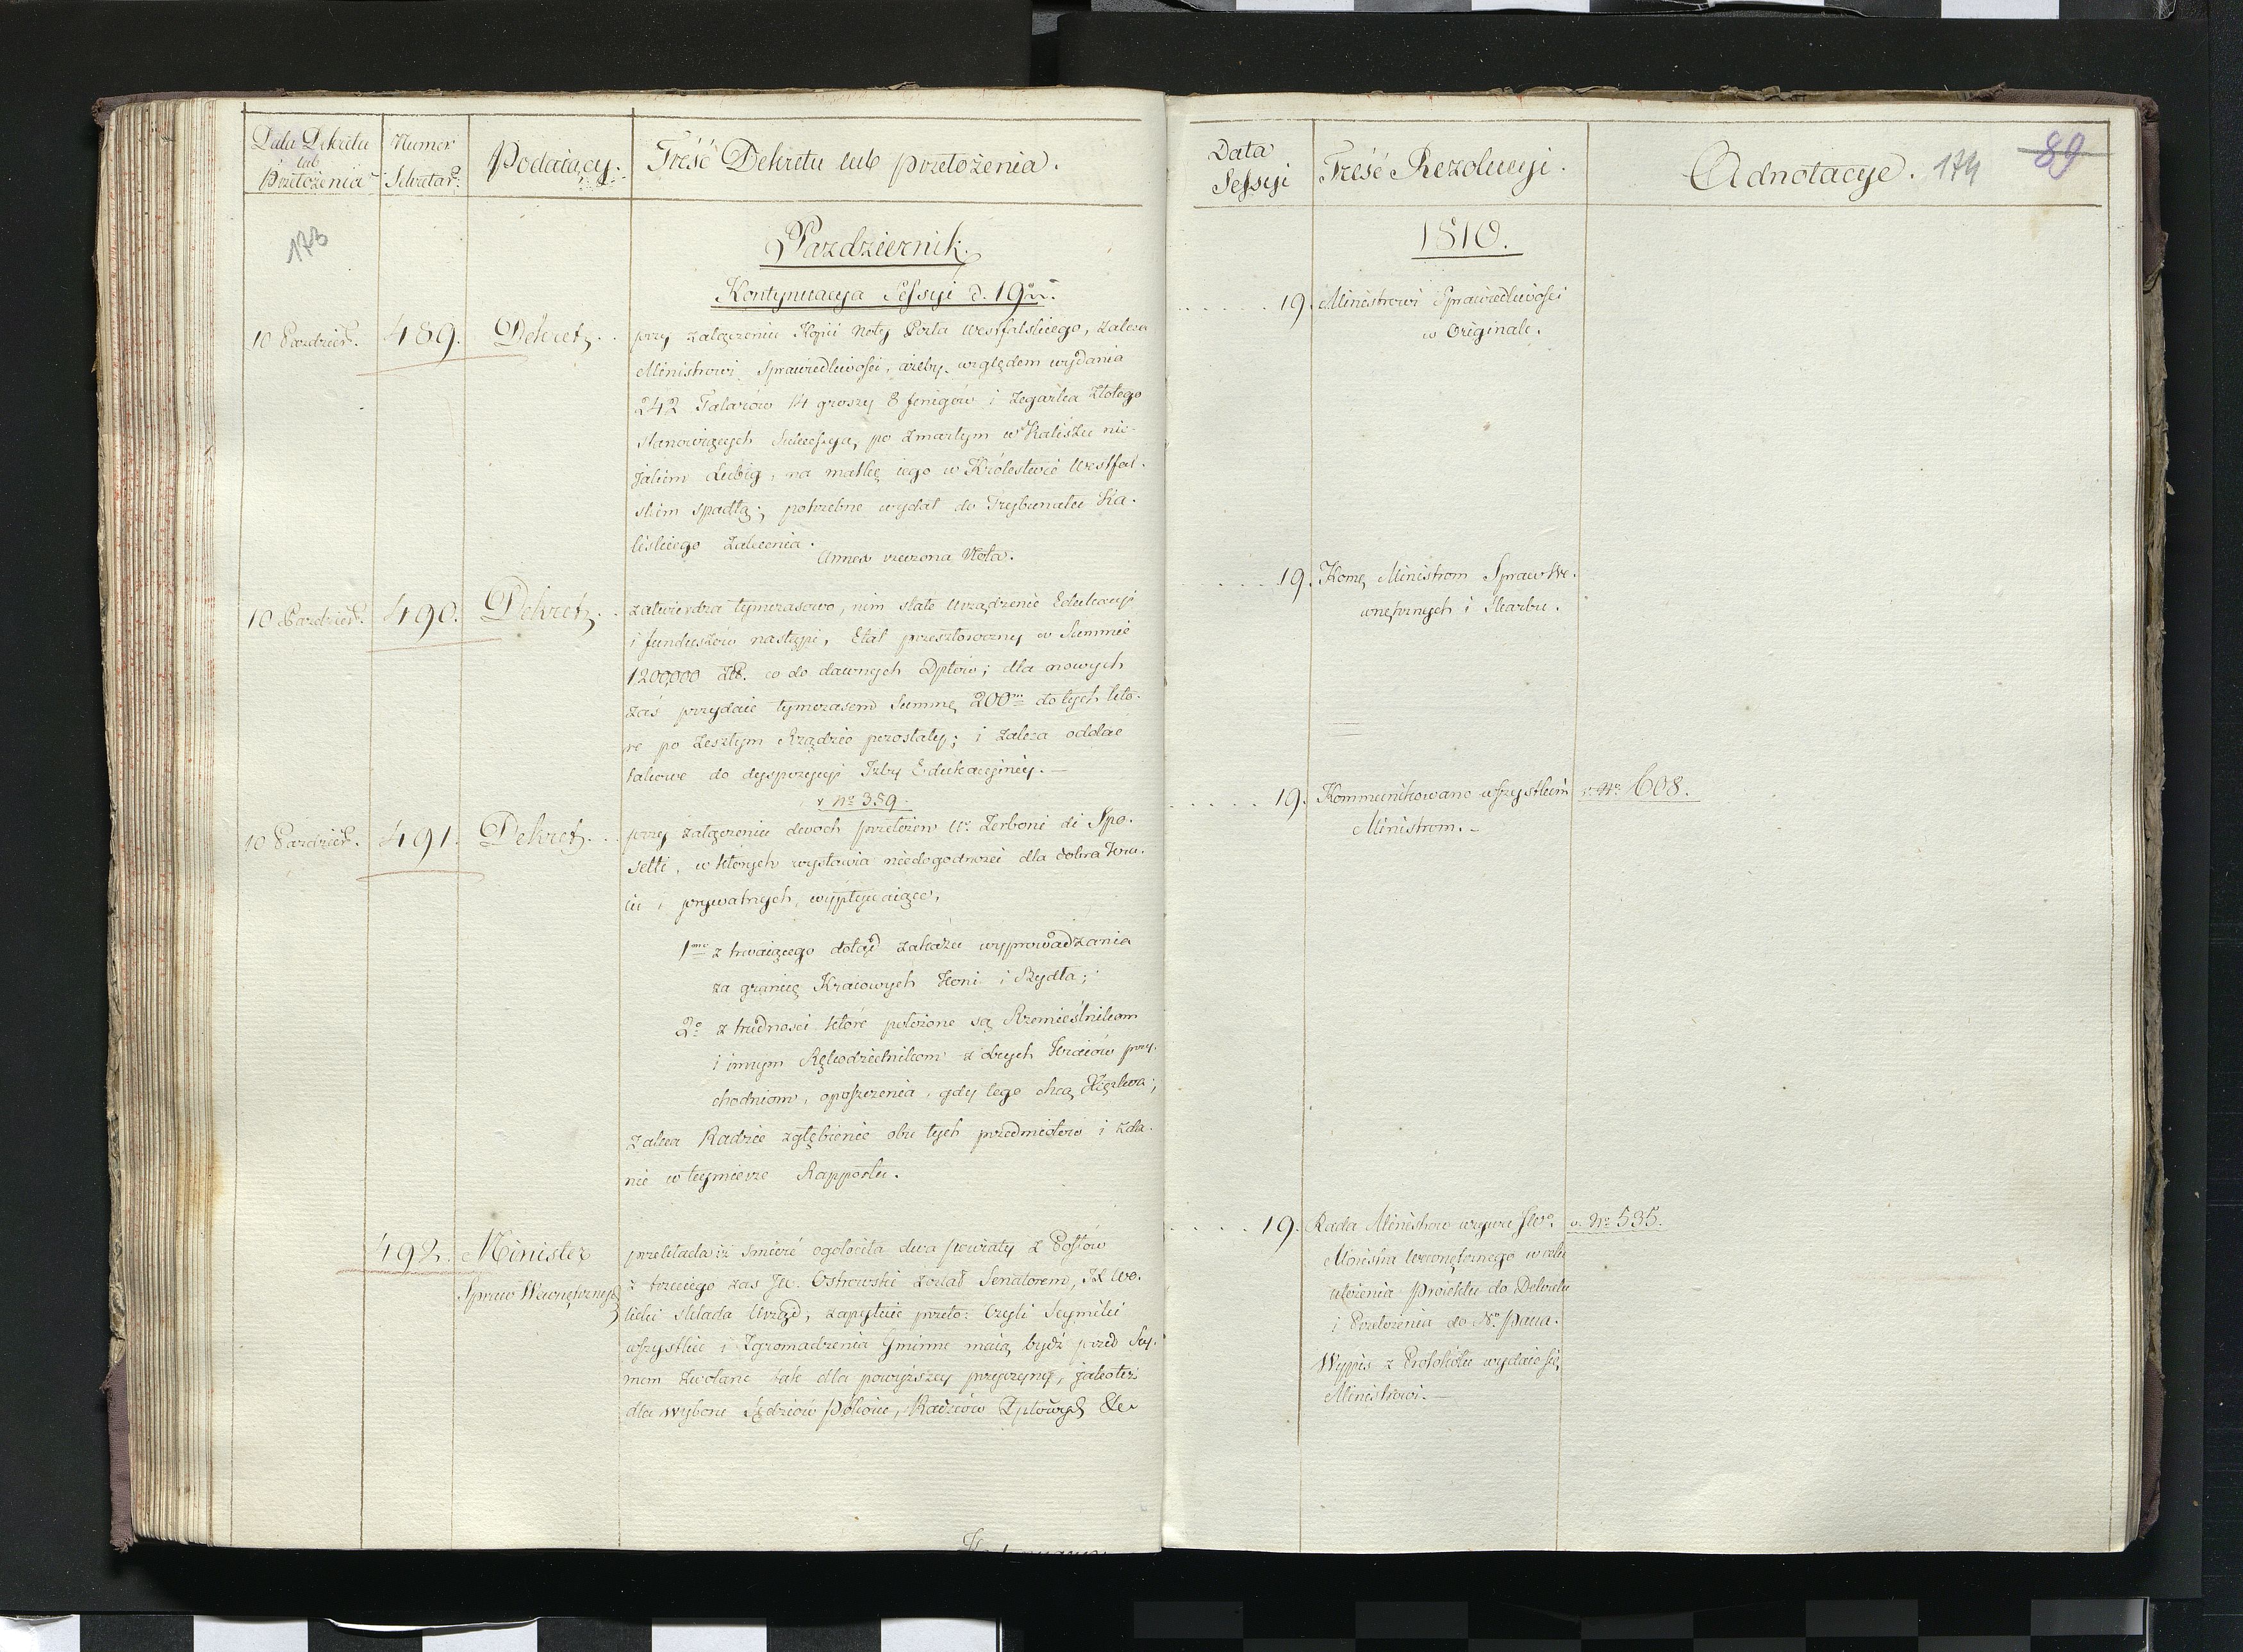 Data Dekretu
lub
Przełożenia
Numer
Sekretar:
Podaiący.
Treść Dekretu lub przełożenia.
173
Pazdziernik.
Kontynuacya Sessyi d. 19
10 Pazdzier.
489.
Dekret.
przy załączeniu Kopii Noty Posła Westfalskiego, zaleca
Ministrowi Sprawiedliwości, ażeby względem wydania
242 Talarów 14 groszy 8 fenigów i Zegarka Złotego
stanowiących Sukcessyą, po zmarłym w Kaliszu nie-
jakim Ludwig, na matkę iego w Królestwie Westfal-
skim spadłą; potrzebne wydał do Trybunału Ka-
liskiego zalecenia.
Annex rzeczona Nota.
10 Pazdzier.
490.
Dekret.
zatwierdza tymczasowo, nim stałe Urządzenie Edukacyi
i funduszów nastąpi, Etat przeszłoroczny w Summie
1200,000 Zł. co do dawnych Dptów; dla nowych
zaś przydaie tymczasem Summę 200m do tych któ-
re po zeszłym Rządzie pozostały; i zaleca oddać
takowe do dyspozycyi Izby Edukacyjney. —
v No 359.
10 Pazdzier.
491.
Dekret.
przy załączeniu dwóch przełożeń Ur. Zerboni di Spo-
setti, w których wystawia niedogodności dla dobra Kra-
iu i prywatnych, wypływaiące,
1mo z trwaiącego dotąd zakazu wyprowadzania
za granicę Kraiowych Koni i Bydła;
2o z trudności które położone są Rzemieślnikom
i innym Rękodzielnikom z obcych Kraiów przy-
chodniom, opuszczenia, gdy tego chcą Xięztwa;
zaleca Radzie zgłębienie obu tych przedmiotów i zda-
nie w teymierze Rapportu.
492.
Minister
Spraw Wewnętrznych
przekłada iż śmierć ogołociła dwa powiaty z Posłów
z trzeciego zaś JW. Ostrowski został Senatorem, JX Wo-
licki składa Urząd, zapytuie przeto: Czyli Seymiki
wszystkie i Zgromadzenia Gminne maią bydź przed Sey-
mem zwołane tak dla powyższey przyczyny, jakoteż
dla wyboru Sędziów Pokoiu, Radzców Dptowych &c
Data
Sessyi
Treść Rezolucyi.
Adnotacye.
174
89
1810.
19.
Ministrowi Sprawiedliwości
w Originale.
19.
Komę Ministrom Spraw We-
wnętrznych i Skarbu.
19.
Kommunikowano wszystkim
Ministrom. —
v. No 608.
19.
Rada Ministrów wzywa JWo
Ministra Wewnętrznego w celu
ułożenia Proiektu do Dekretu
i Przełożenia do N. Pana.
Wypis z Protokółu wydaie się
Ministrowi. —
v. No 535.